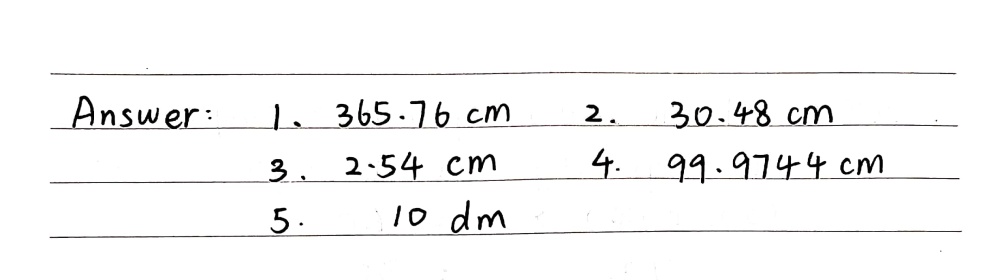 Answer: 1. 365.76 cm 2. 30.48 cm
3. 2.54 cm 4. 99.9744 cm
5. 10 dm